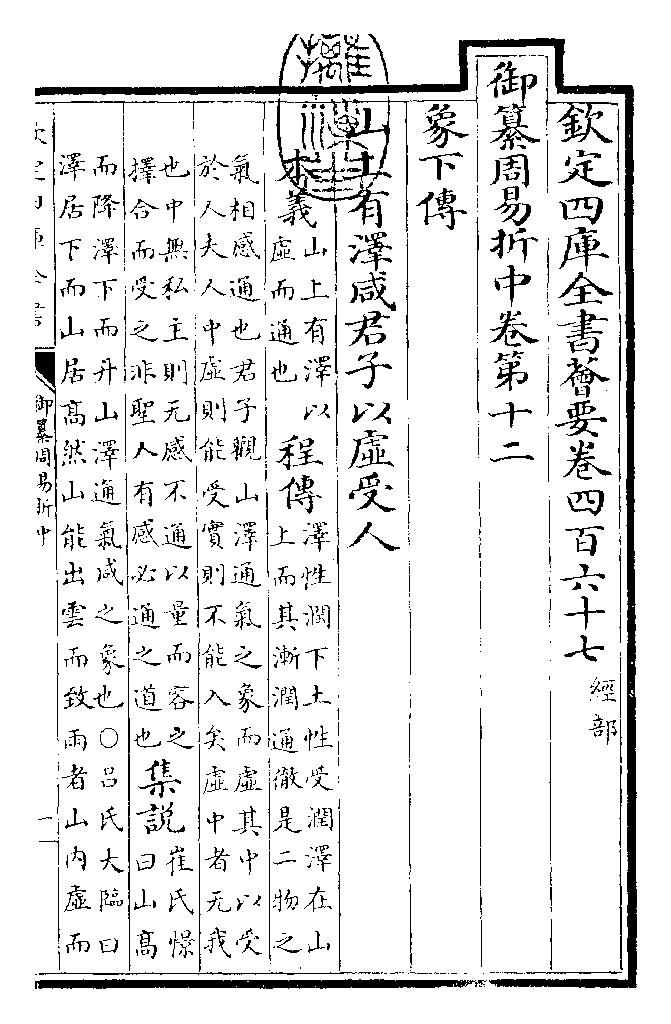 欽定四庫全書薈要卷四百六十七 經部
御纂周易折中卷第十二
象下傳
山上有澤咸君子以虛受人
本義 山上有澤以
虛而通也 程傳 澤性潤下土性受潤澤在山
上而其漸潤通徹是二物之
氣相感通也君子觀山澤通氣之象而虛其中以受
於人夫人中虛則能受實則不能入矣虛中者无我
也中無私主則无感不通以量而容之
擇合而受之非聖人有感必通之道也 集説 崔氏憬
曰山高
而降澤下而升山澤通氣咸之象也○呂氏大臨曰
澤居下而山居高然山能出雲而致雨者山內虛而
欽定四庫全書
御纂周易折中
一